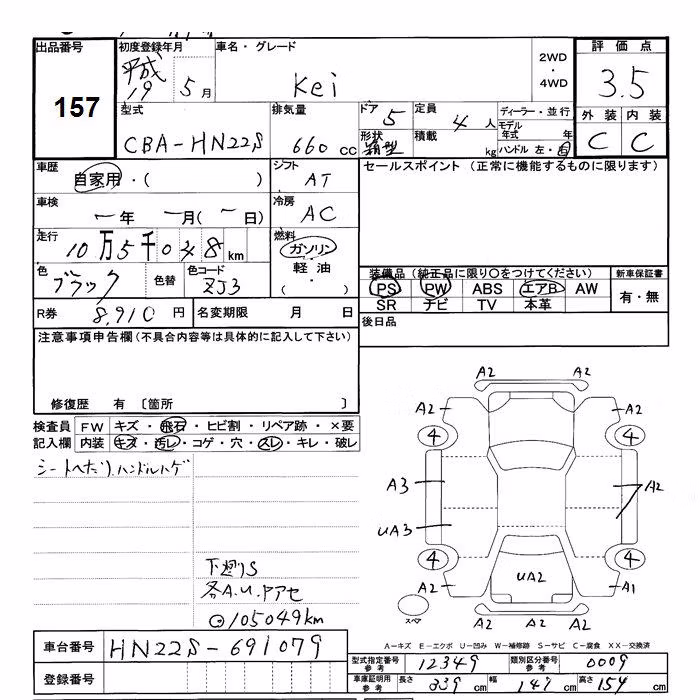 出品番号 初度登録年月 車名・グレード 2WD ・ 4WD 評価点
157 平成 19 5月 Kei 3.5
型式 排気量 ドア 5 定員 4人 ディーラー・並行 外装 内装
CBA-HN22S 660 cc 形状 箱型 積載 kg モデル年式 年 ハンドル 左・右 C C
車歴 自家用・( ) シフト AT セールスポイント (正常に機能するものに限ります)
車検 ー年 ー月(ー日) 冷房 AC
走行 10万5千048km 燃料 ガソリン
色 ブラック 色替 色コード ZJ3 軽油 ( ・ )
装備品 (純正品に限り○をつけてください) 新車保証書
PS PW ABS エアB AW 有・無
SR ナビ TV 本革
R券 8,910円 名変期限 月 日 後日品
注意事項申告欄(不具合内容等は具体的に記入して下さい)
修復歴 有 〔箇所 〕
検査員 FW キズ・飛石・ヒビ割・リペア跡・×要
記入欄 内装 キズ・汚レ・コゲ・穴・スレ・キレ・破レ
シートヘたり、ハンドルハゲ
下廻りS
各A.U.アアセ
⊙105049km
A2 A2
A2 A2
4 4
A3 A2
UA3
4 4
A2 UA2 A1
スペア A2 A2 A2
A=キズ E=エクボ U=凹み W=補修跡 S=サビ C=腐食 XX=交換済
車台番号 HN22S-691079
型式指定番号 参考 12349 類別区分番号 参考 0009
登録番号
車庫証明用 参考 長さ 339cm 幅 147cm 高さ 154cm